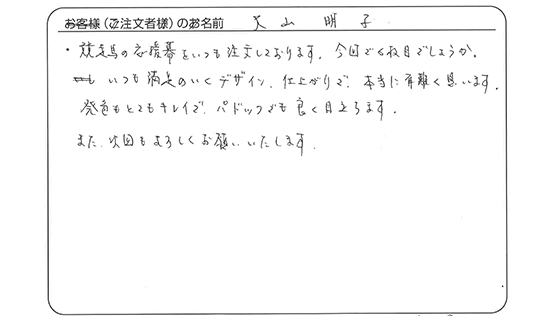 お客様（ご注文者様）のお名前 大山 明子
・競走馬の応援幕をいつも注文しております。今回で6枚目でしょうか。
いつも満足のいくデザイン、仕上がりで、本当に有難く思います。
発色もとてもキレイで、パドックでも良く目立ちます。
また、次回もよろしくお願いいたします。